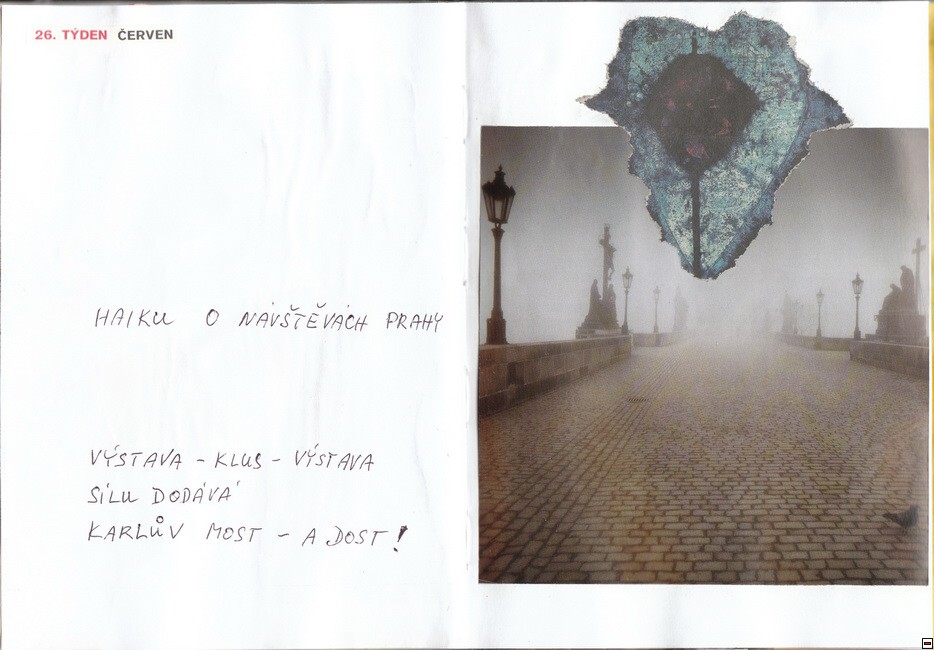 26. TÝDEN ČERVEN
HAIKU O NÁVŠTĚVÁCH PRAHY
VÝSTAVA - KLUS - VÝSTAVA
SÍLU DODÁVÁ
KARLŮV MOST - A DOST!